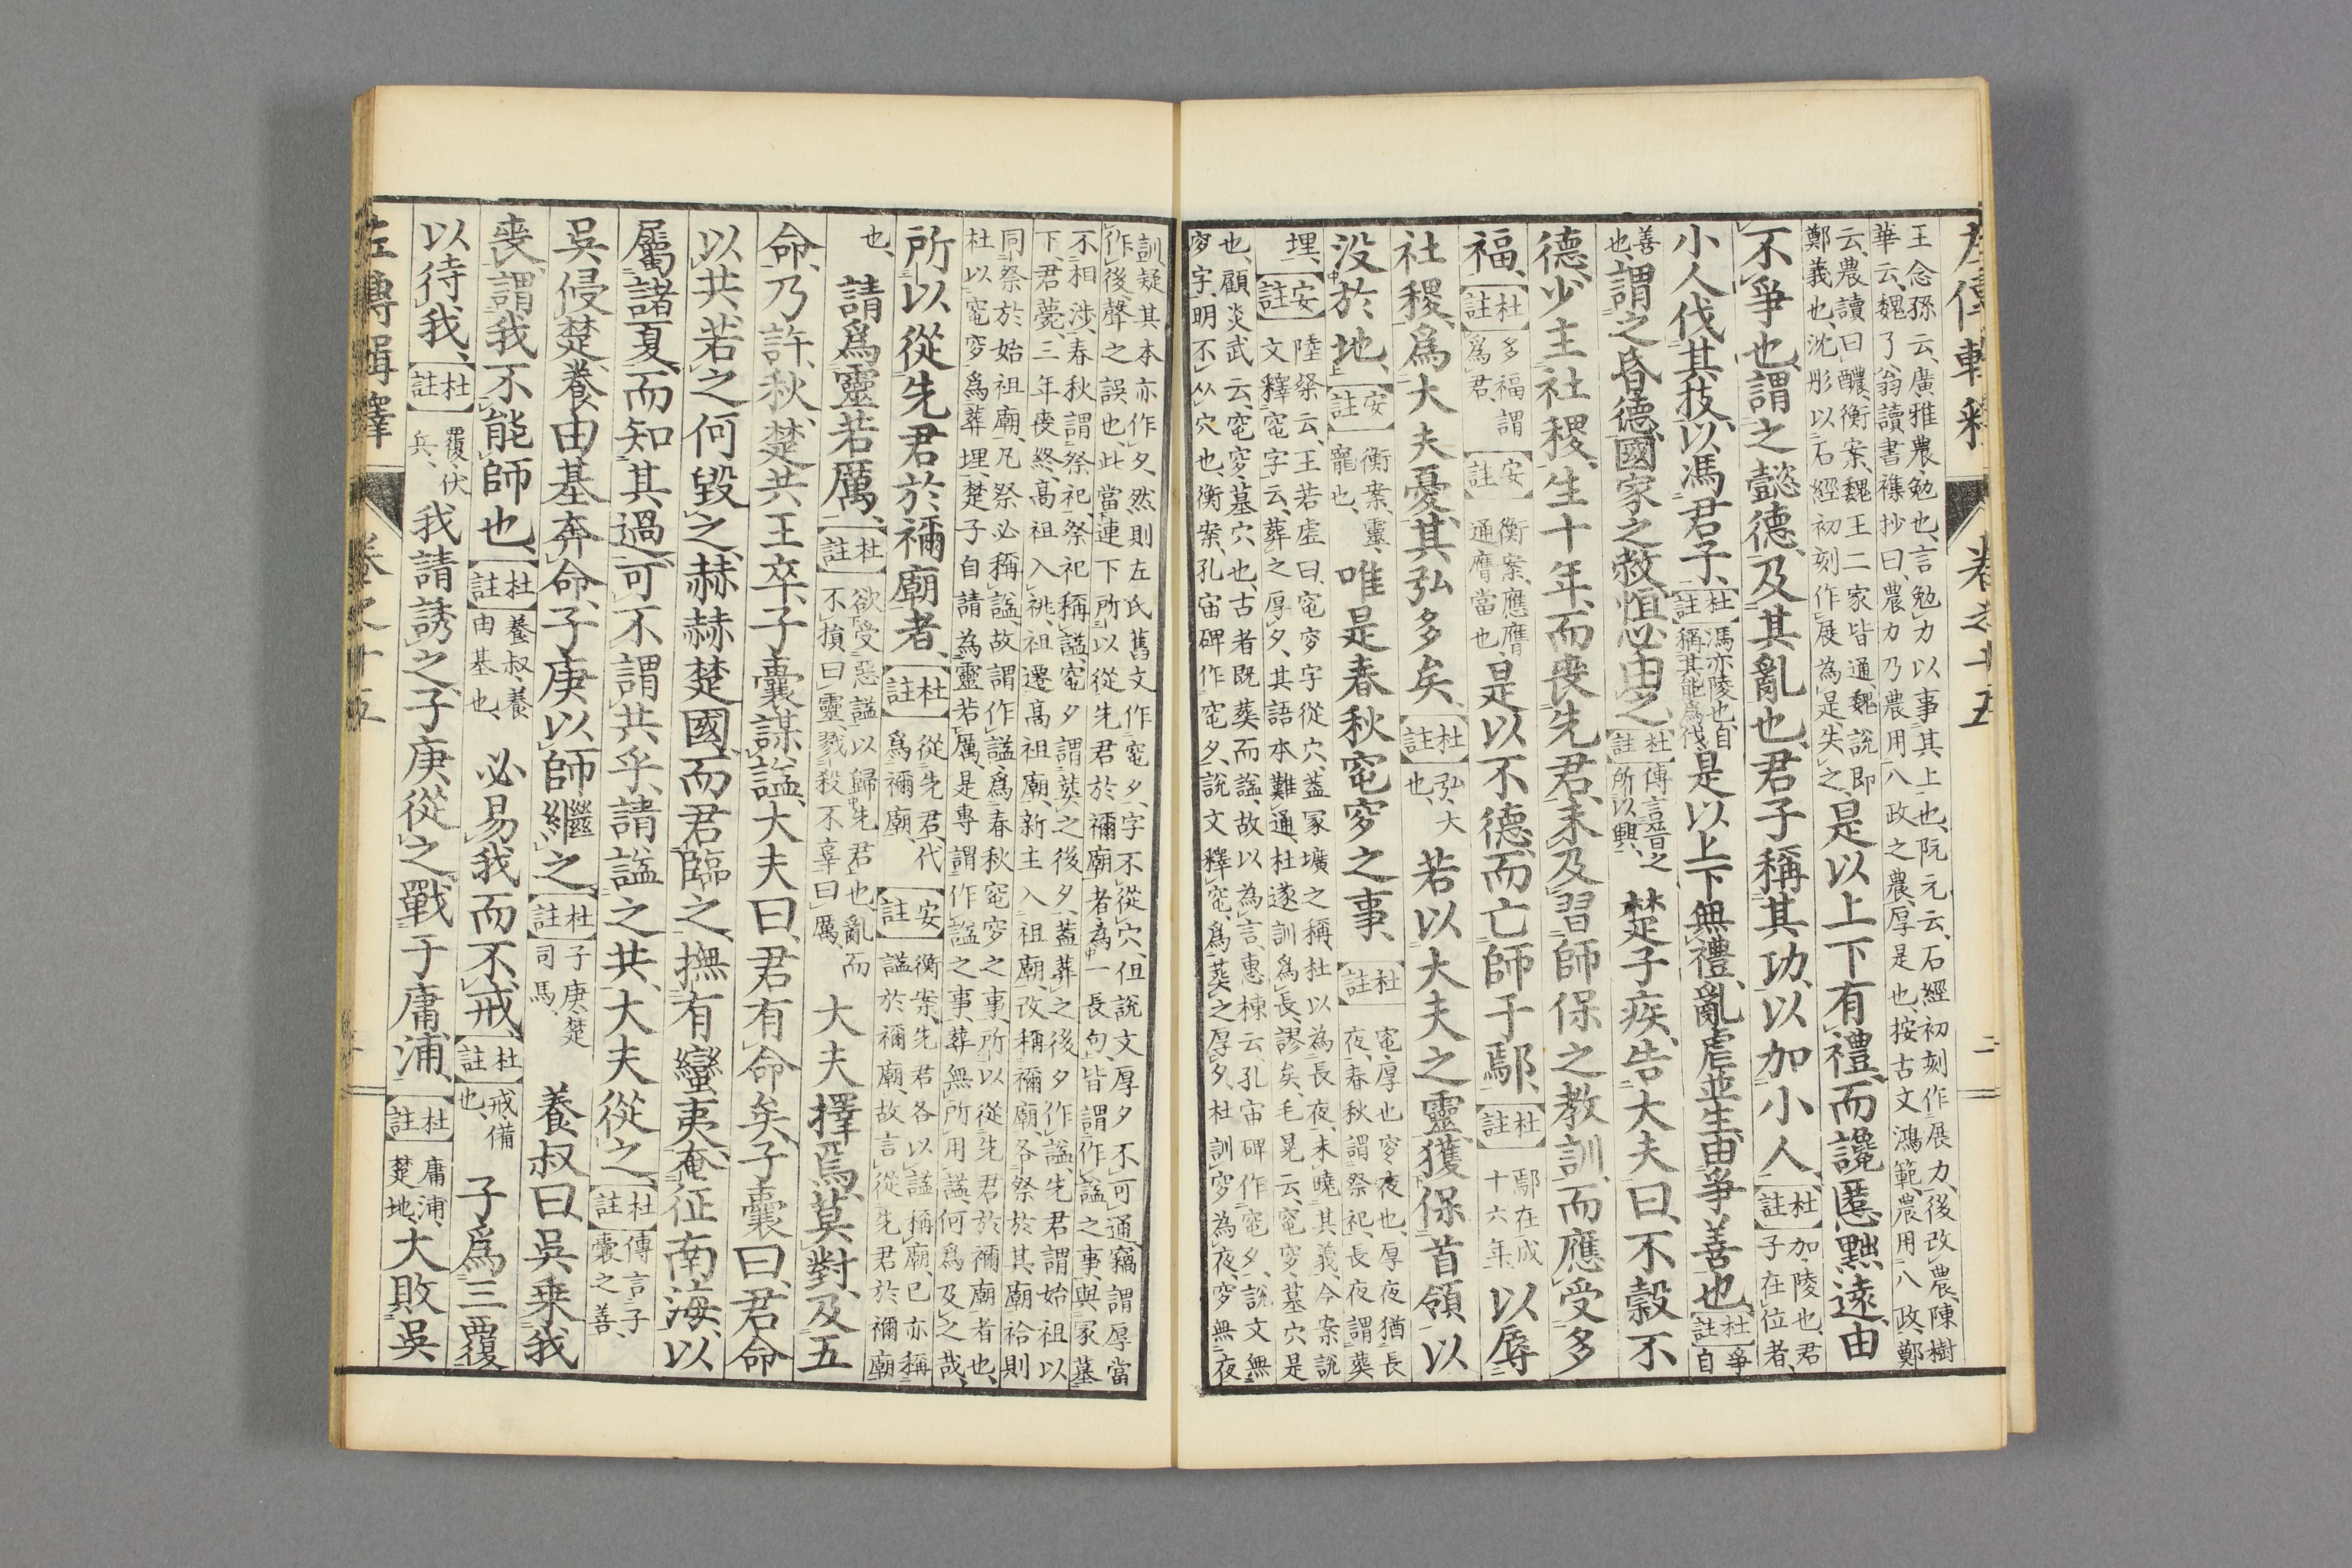 左傳輯釋　卷之十五　二
王念孫云、廣雅農、勉也、言勉力以事其上也、阮元云、石經初刻作展力、後改農、陳樹
華云、魏了翁讀書襍抄曰、農力乃農用八政之農、厚是也、按古文鴻範、農用八政、鄭
云、農讀曰醲、衡案、魏王二家皆通、魏說即鄭義也、沈彤以石經初刻作展為是、失之、是以上下有禮、而讒慝黜遠、由
不爭也、謂之懿德、及其亂也、君子稱其功、以加小人、【杜註】加、陵也、君子在位者、
小人伐其技、以馮君子、【杜註】馮亦陵也、自稱其能爲伐、是以上下無禮、亂虐並生、由爭善也、【杜註】爭自
善也、謂之昏德、國家之敝、恒必由之、【杜註】傳言晉之所以興、楚子疾、告大夫曰、不穀不
德、少主社稷、生十年、而喪先君、未及習師保之教訓、而應受多
福、【杜註】多福謂爲君、【安註】衡案、應膺通、膺當也、是以不德、而亡師于鄢、【杜註】鄢在成十六年、以辱
社稷、爲大夫憂、其弘多矣、【杜註】弘、大也、若以大夫之靈、獲保首領、以
沒於地、【安註】衡案、靈、寵也、唯是春秋窀穸之事、【杜註】窀、厚也、穸、夜也、厚夜猶長夜、春秋謂祭祀、長夜謂葬
埋、【安註】陸粲云、王若虛曰、窀穸字從穴、蓋冢壙之稱、杜以為長夜、未曉其義、今案說
文釋窀字云、葬之厚夕、其語本難通、杜遂訓爲長、謬矣、毛晃云、窀穸、墓穴、是
也、顧炎武云、窀穸、墓穴也、古者既葬而謚、故以為言、惠棟云、孔宙碑作窀夕、說文無
穸字、明不从穴也、衡案、孔宙碑作窀夕、說文釋窀、爲葬之厚夕、杜訓穸為夜、穸無夜
訓、疑其本亦作夕、然則左氏舊文作窀夕、字不從穴、但說文、厚夕不可通、竊謂厚當
作後、聲之誤也、此當連下所以從先君於禰廟者、為一長句、皆謂作謚之事、與冢墓
不相涉、春秋謂祭祀、祭祀稱謚、窀夕謂葬之後夕、蓋葬之後夕作謚、先君謂始祖以
下、君薨、三年喪終、高祖入祧、祖遷高祖廟、新主入祖廟、改稱禰廟、各祭於其廟、祫則
同祭於始祖廟、凡祭必稱謚、故謂作謚、爲春秋窀穸之事、所以從先君於禰廟者也、
杜以窀穸爲葬埋、楚子自請為靈若厲、是專謂作謚之事、葬無所用謚、何爲及之哉、
所以從先君於禰廟者、【杜註】從先君代爲禰廟、【安註】衡案、先君各以謚稱廟、已亦稱謚於禰廟、故言從先君於禰廟
也、請爲靈若厲、【杜註】欲受惡謚以歸先君也、亂而不損曰靈、戮殺不辜曰厲、大夫擇焉、莫對、及五
命、乃許、秋、楚共王卒、子囊謀謚、大夫曰、君有命矣、子囊曰、君命
以共、若之何毀之、赫赫楚國、而君臨之、撫有蠻夷、奄征南海、以
屬諸夏、而知其過、可不謂共乎、請謚之共、大夫從之、【杜註】傳言子囊之善、
吳侵楚、養由基奔命、子庚以師繼之、【杜註】子庚、楚司馬、養叔曰、吳乘我
喪、謂我不能師也、【杜註】養叔、養由基也、必易我而不戒、【杜註】戒備也、子爲三覆
以待我、【杜註】覆、伏兵、我請誘之、子庚從之、戰于庸浦、【杜註】庸浦、楚地、大敗吳
左傳輯釋　卷之十五